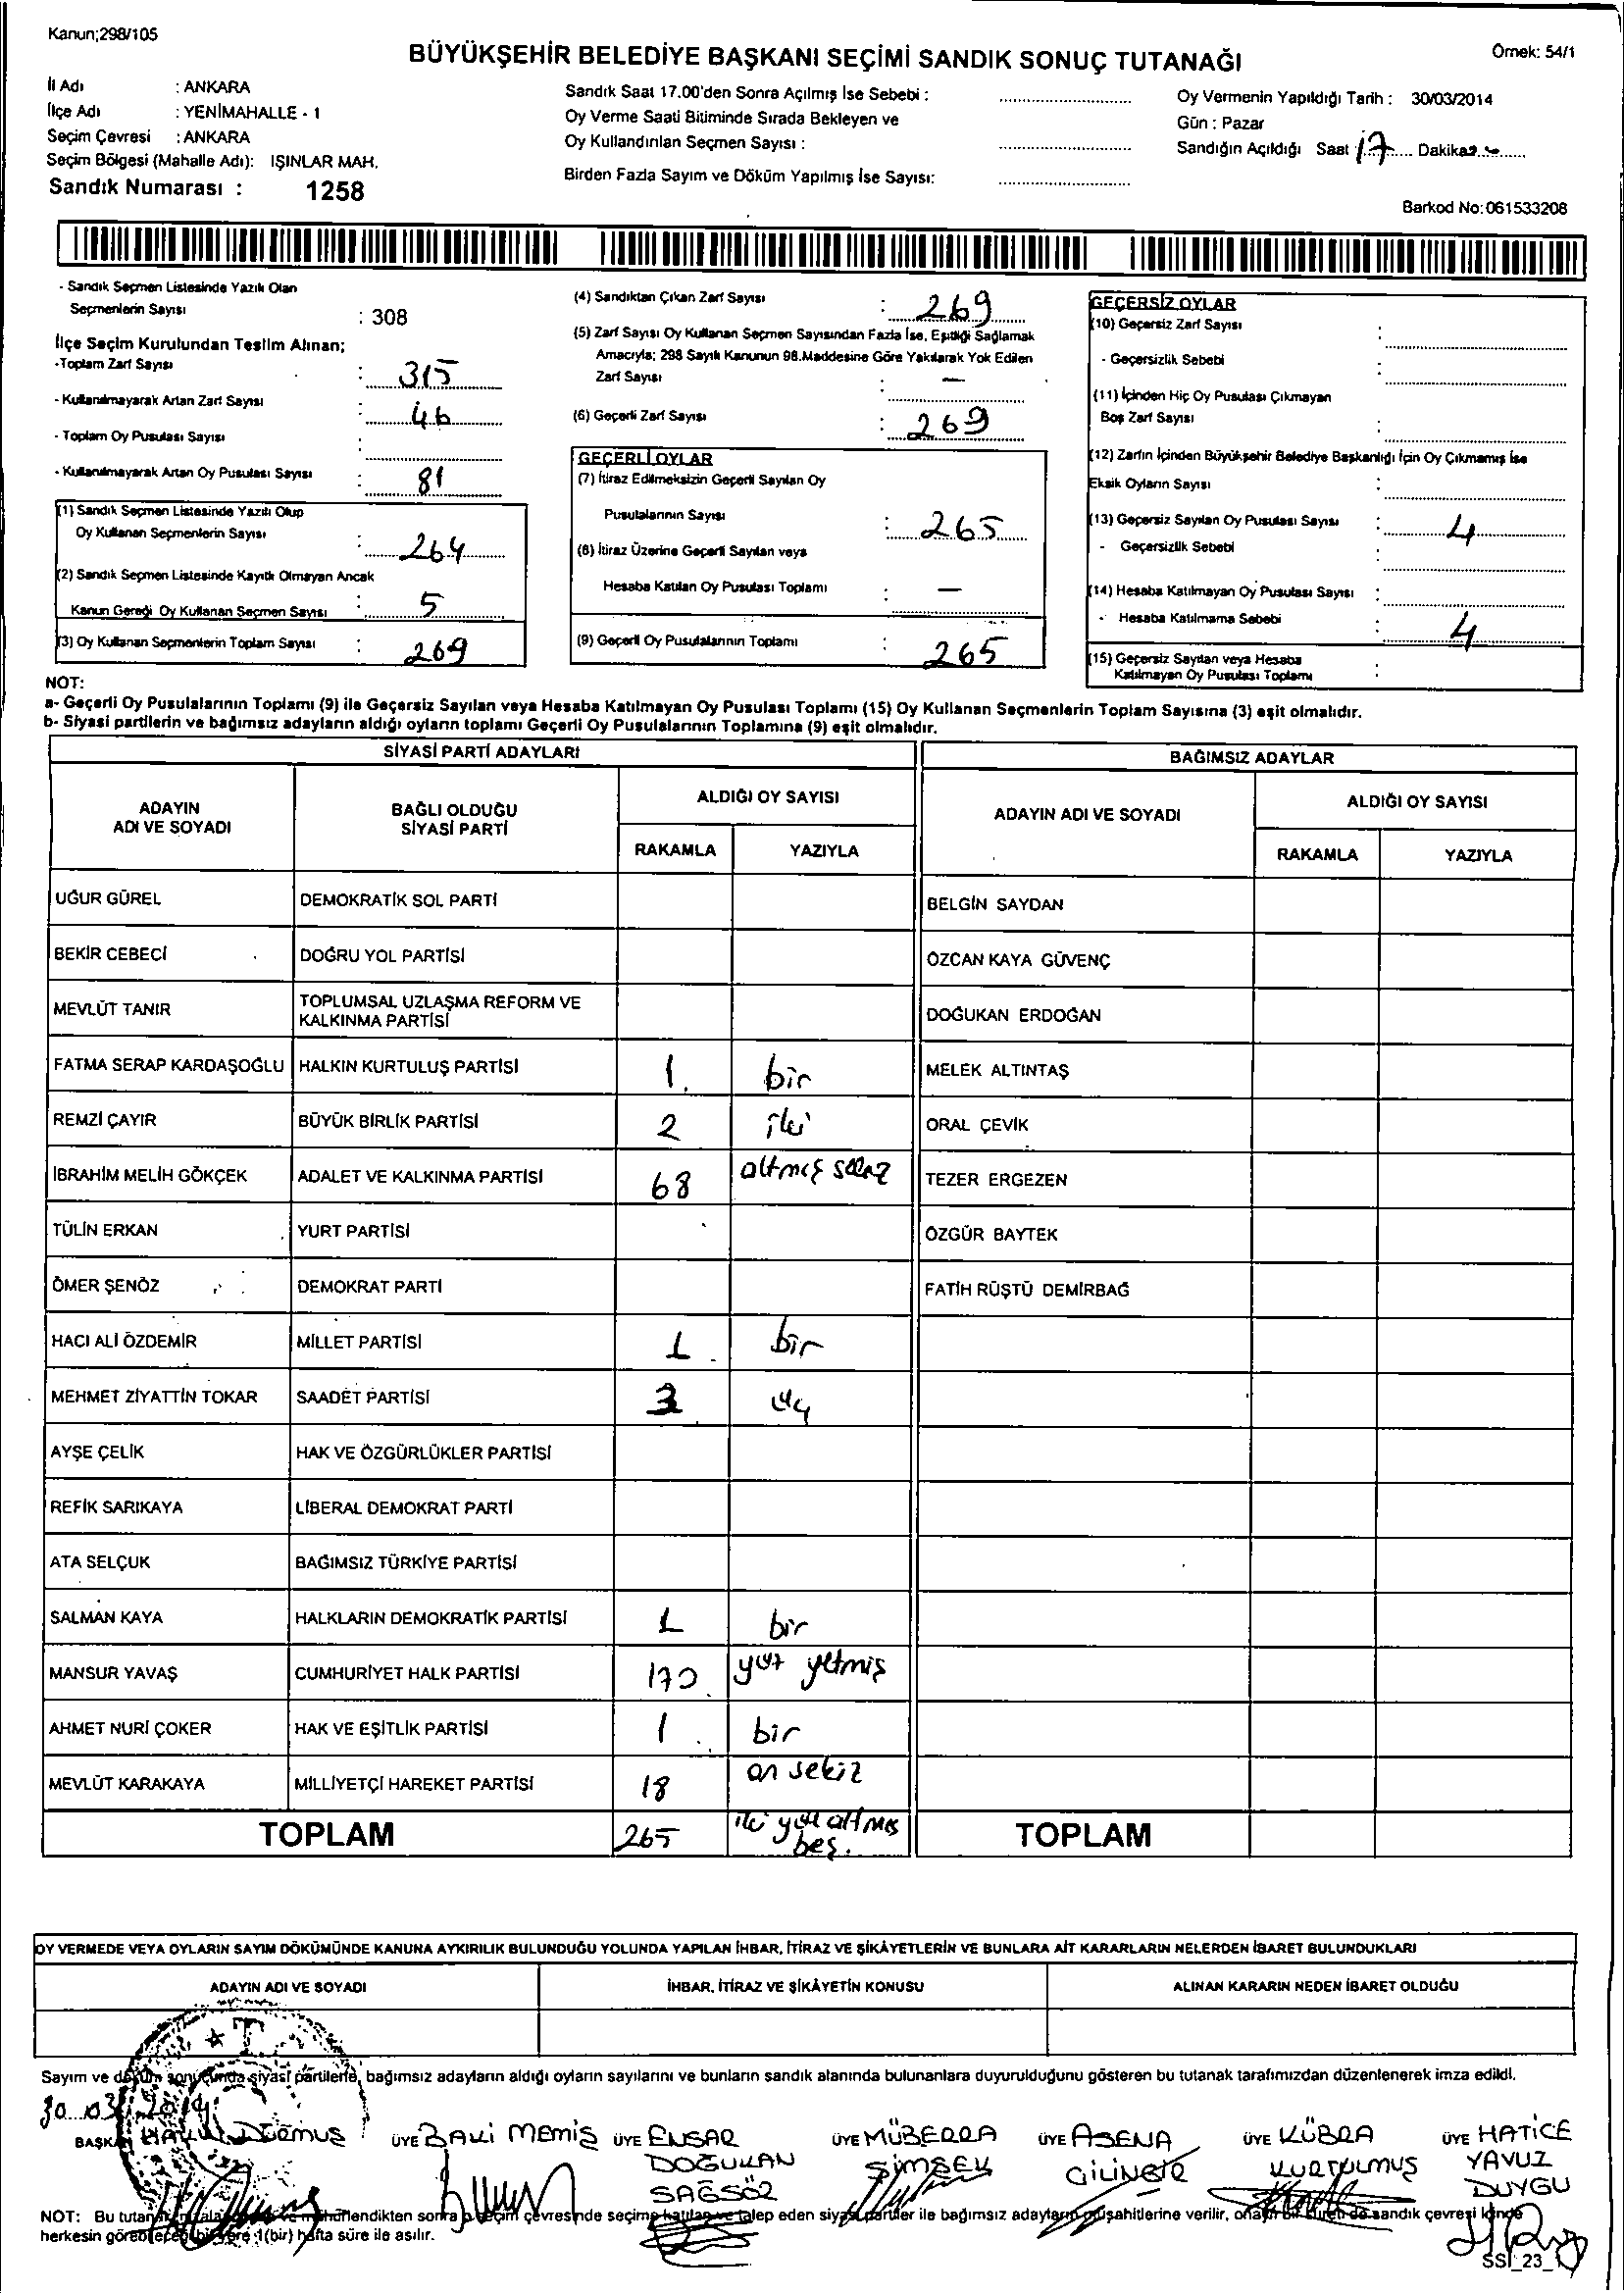 Kanun;298/105
BÜYÜKŞEHİR BELEDİYE BAŞKANI SEÇİMİ SANDIK SONUÇ TUTANAĞI
Örnek: 54/1
İl Adı : ANKARA
İlçe Adı : YENİMAHALLE - 1
Seçim Çevresi : ANKARA
Seçim Bölgesi (Mahalle Adı): IŞINLAR MAH.
Sandık Numarası : 1258
Sandık Saat 17.00'den Sonra Açılmış İse Sebebi :
Oy Verme Saati Bitiminde Sırada Bekleyen ve
Oy Kullandırılan Seçmen Sayısı :
Birden Fazla Sayım ve Döküm Yapılmış İse Sayısı:
Oy Vermenin Yapıldığı Tarih : 30/03/2014
Gün : Pazar
Sandığın Açıldığı Saat 17 Dakika
Barkod No:061533208
- Sandık Seçmen Listesinde Yazılı Olan
Seçmenlerin Sayısı : 308
İlçe Seçim Kurulundan Teslim Alınan;
-Toplam Zarf Sayısı : 315
- Kullanılmayarak Artan Zarf Sayısı : 46
- Toplam Oy Pusulası Sayısı :
- Kullanılmayarak Artan Oy Pusulası Sayısı : 81
(1) Sandık Seçmen Listesinde Yazılı Olup
Oy Kullanan Seçmenlerin Sayısı : 264
(2) Sandık Seçmen Listesinde Kayıtlı Olmayan Ancak
Kanun Gereği Oy Kullanan Seçmen Sayısı : 5
(3) Oy Kullanan Seçmenlerin Toplam Sayısı : 269
(4) Sandıktan Çıkan Zarf Sayısı : 269
(5) Zarf Sayısı Oy Kullanan Seçmen Sayısından Fazla İse, Eşitliği Sağlamak
Amacıyla; 298 Sayılı Kanunun 98.Maddesine Göre Yakılarak Yok Edilen
Zarf Sayısı : —
(6) Geçerli Zarf Sayısı : 269
GEÇERLİ OYLAR
(7) İtiraz Edilmeksizin Geçerli Sayılan Oy
Pusulalarının Sayısı : 265
(8) İtiraz Üzerine Geçerli Sayılan veya
Hesaba Katılan Oy Pusulası Toplamı : —
(9) Geçerli Oy Pusulalarının Toplamı : 265
GEÇERSİZ OYLAR
(10) Geçersiz Zarf Sayısı :
- Geçersizlik Sebebi :
(11) İçinden Hiç Oy Pusulası Çıkmayan
Boş Zarf Sayısı :
(12) Zarfın İçinden Büyükşehir Belediye Başkanlığı İçin Oy Çıkmamış İse
Eksik Oyların Sayısı :
(13) Geçersiz Sayılan Oy Pusulası Sayısı : 4
- Geçersizlik Sebebi :
(14) Hesaba Katılmayan Oy Pusulası Sayısı :
- Hesaba Katılmama Sebebi : 4
(15) Geçersiz Sayılan veya Hesaba
Katılmayan Oy Pusulası Toplamı :
NOT:
a- Geçerli Oy Pusulalarının Toplamı (9) ile Geçersiz Sayılan veya Hesaba Katılmayan Oy Pusulası Toplamı (15) Oy Kullanan Seçmenlerin Toplam Sayısına (3) eşit olmalıdır.
b- Siyasi partilerin ve bağımsız adayların aldığı oyların toplamı Geçerli Oy Pusulalarının Toplamına (9) eşit olmalıdır.
SİYASİ PARTİ ADAYLARI
BAĞIMSIZ ADAYLAR
ADAYIN ADI VE SOYADI
BAĞLI OLDUĞU SİYASİ PARTİ
ALDIĞI OY SAYISI
RAKAMLA YAZIYLA
ADAYIN ADI VE SOYADI
ALDIĞI OY SAYISI
RAKAMLA YAZIYLA
UĞUR GÜREL DEMOKRATİK SOL PARTİ BELGİN SAYDAN
BEKİR CEBECİ DOĞRU YOL PARTİSİ ÖZCAN KAYA GÜVENÇ
MEVLÜT TANIR TOPLUMSAL UZLAŞMA REFORM VE KALKINMA PARTİSİ DOĞUKAN ERDOĞAN
FATMA SERAP KARDAŞOĞLU HALKIN KURTULUŞ PARTİSİ 1 bir MELEK ALTINTAŞ
REMZİ ÇAYIR BÜYÜK BİRLİK PARTİSİ 2 iki ORAL ÇEVİK
İBRAHİM MELİH GÖKÇEK ADALET VE KALKINMA PARTİSİ 68 altmış sekiz TEZER ERGEZEN
TÜLİN ERKAN YURT PARTİSİ ÖZGÜR BAYTEK
ÖMER ŞENÖZ DEMOKRAT PARTİ FATİH RÜŞTÜ DEMİRBAĞ
HACI ALİ ÖZDEMİR MİLLET PARTİSİ 1 bir
MEHMET ZİYATTİN TOKAR SAADET PARTİSİ 3 üç
AYŞE ÇELİK HAK VE ÖZGÜRLÜKLER PARTİSİ
REFİK SARIKAYA LİBERAL DEMOKRAT PARTİ
ATA SELÇUK BAĞIMSIZ TÜRKİYE PARTİSİ
SALMAN KAYA HALKLARIN DEMOKRATİK PARTİSİ 1 bir
MANSUR YAVAŞ CUMHURİYET HALK PARTİSİ 170 yüz yetmiş
AHMET NURİ ÇOKER HAK VE EŞİTLİK PARTİSİ 1 bir
MEVLÜT KARAKAYA MİLLİYETÇİ HAREKET PARTİSİ 18 on sekiz
TOPLAM 265 iki yüz altmış beş. TOPLAM
OY VERMEDE VEYA OYLARIN SAYIM DÖKÜMÜNDE KANUNA AYKIRILIK BULUNDUĞU YOLUNDA YAPILAN İHBAR, İTİRAZ VE ŞİKÂYETLERİN VE BUNLARA AİT KARARLARIN NELERDEN İBARET BULUNDUKLARI
ADAYIN ADI VE SOYADI İHBAR, İTİRAZ VE ŞİKÂYETİN KONUSU ALINAN KARARIN NEDEN İBARET OLDUĞU
Sayım ve döküm sonucunda siyasi partilerle, bağımsız adayların aldığı oyların sayılarını ve bunların sandık alanında bulunanlara duyurulduğunu gösteren bu tutanak tarafımızdan düzenlenerek imza edildi.
30 03 2014
BAŞKAN DURMUŞ ÜYE BAKİ MEMİŞ ÜYE ENSAR ÜYE MÜBERRA ÜYE ASENA ÜYE KÜBRA ÜYE HATİCE
DOĞUKAN ŞİMŞEK KURTULMUŞ YAVUZ
SAĞSÖZ DUYGU
NOT: Bu tutanağın mühürlendikten sonra seçim çevresinde seçime katılan ve talep eden siyasi partiler ile bağımsız adayların müşahitlerine verilir, onaylı bir sureti de sandık çevresi içinde
herkesin görebileceği bir yere 1(bir) hafta süre ile asılır.
SSİ_23_